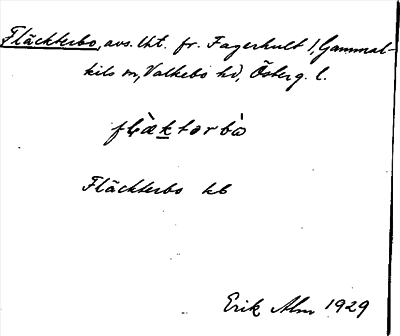 Fläckterbo, avs. lht. fr. Fagerhult 1, Gammal-
kils sn, Valkebo hd, Österg. l.
flæ̀ktərbò
Fläckterbo kb
Erik Alm 1929